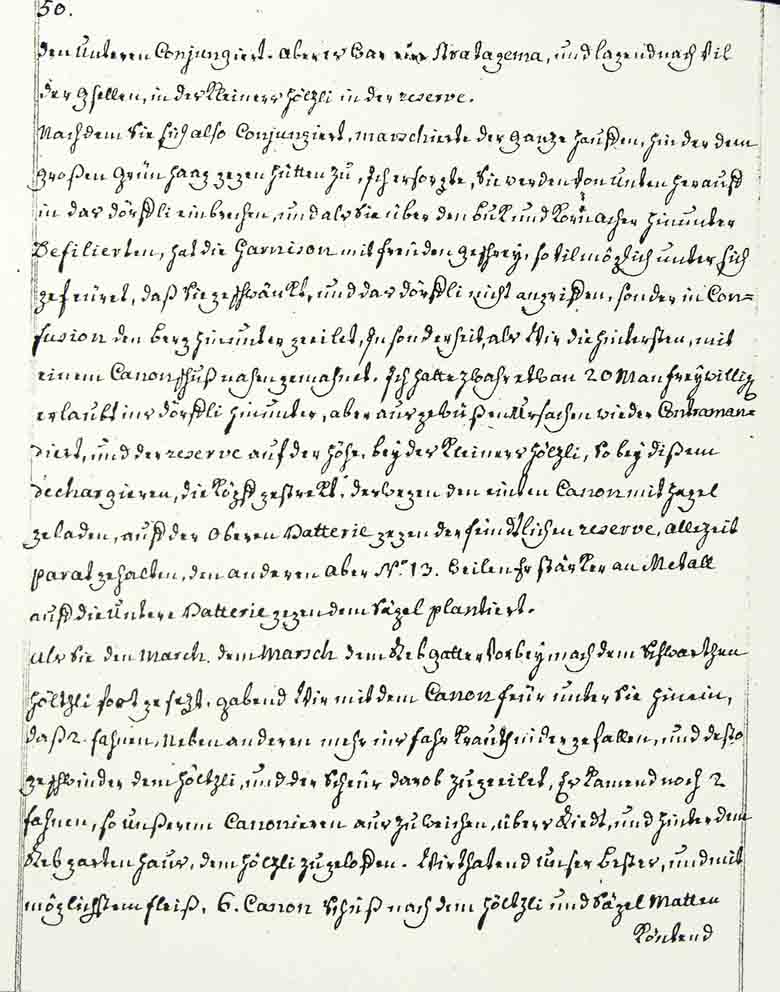 50.
den Unteren Conjungiert. aber es war nur Stratagema, und lagend nach vil
der gsellen, in des Kleiners höltzli in der reserve.
Nach dem Sie sich also Conjungiert, marschierte der gantze hauffen, hin der dem
großen Grün haag gegen hütten zu, Ich ersorgte, Sie werden von Unten herauff
in das dörffli einbrechen, und als Sie über den buk und Korn acher hinunter
Defilierten, hat die Garnison mit freuden geschrey, so vil möglich unter sich
gefeüret, daß Sie geschwänkt, und das dörffli nicht angriffen, sonder in Con=
fusion den berg hinunter geeilet, In sonderheit, als Wir die hintersten, mit
einem Canonschuß nahen gemahnet. Ich hatte zwahr etwan 20 Man freywillig
erlaubt ins dörffli hinunter, aber aus gewüßen Ursachen wieder Contraman=
diert, und der reserve auf der höhe, bey des Kleiners höltzli, so bey dißem
dechargieren, die Köpff gestrekt, derwegen den einten Canon mit hagel
geladen, auff der Oberen Batterie gegen der feindtlichen reserve, allezeit
parat gehalten, den anderen aber No. 13. weilen Er stärker an Metall
auff die Untere Batterie gegen dem Sägel plantiert.
Als Sie den March. dem Marsch dem Rebgatter vorbey nach dem Schwartzen
höltzli fort gesezt, gabend Wir mit dem Canon feür unter Sie hinein,
daß 2. fahnen, Neben anderen mehr ins fahr Krauth nider gefallen, und desto
geschwinder dem höltzli, und der Scheür darob zugeeilet, Es kamend noch 2
fahnen, so Unßerem Canonieren auszuweichen, übers Riedt, und hinter dem
Rebgarten haus, dem höltzli zugeloffen. Wir thatend Unser bestes, und mit
möglichstem fleiß, 6. Canon Schüß nach dem höltzli und Sägel Matten
Köntend